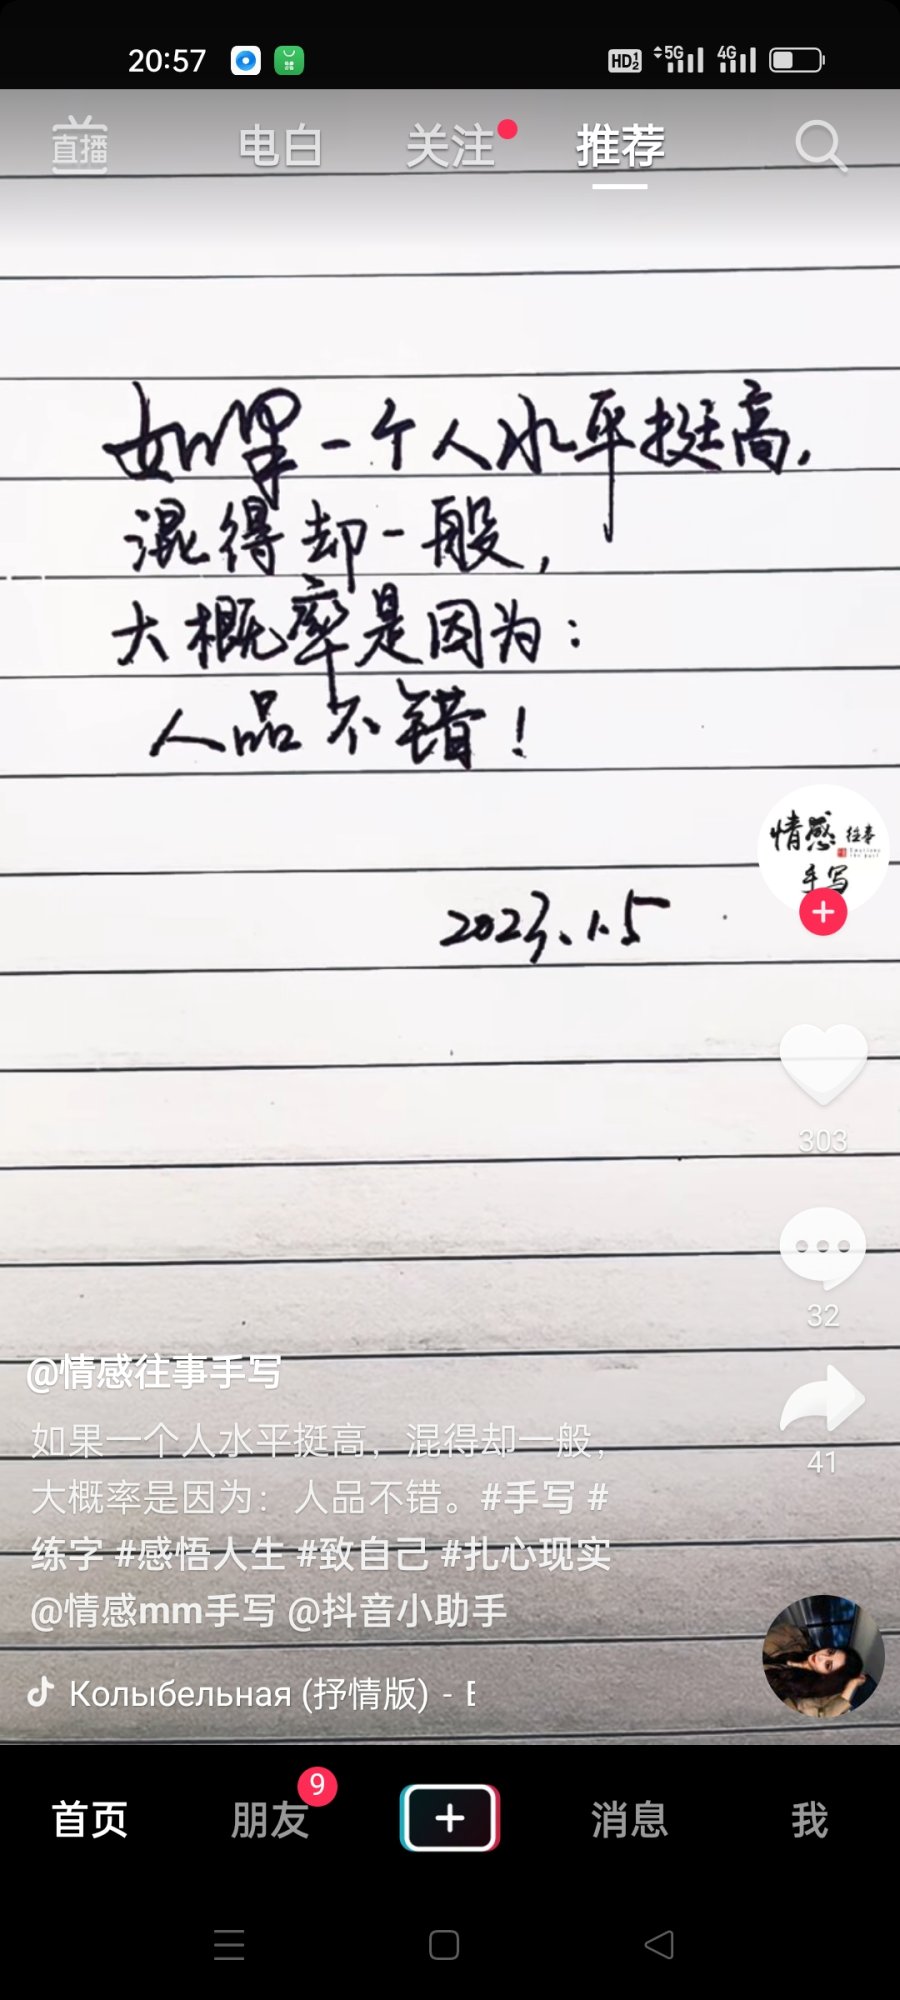 20:57
HD 1 2 5G 4G
直播 电白 关注 推荐
如果一个人水平挺高,
混得却一般,
大概率是因为:
人品不错!
情感 往事
手写
2023.1.5
303
32
@情感往事手写
如果一个人水平挺高，混得却一般，
41
大概率是因为：人品不错。#手写 #
练字 #感悟人生 #致自己 #扎心现实
@情感mm手写 @抖音小助手
Колыбельная (抒情版) -
首页 朋友 9 消息 我